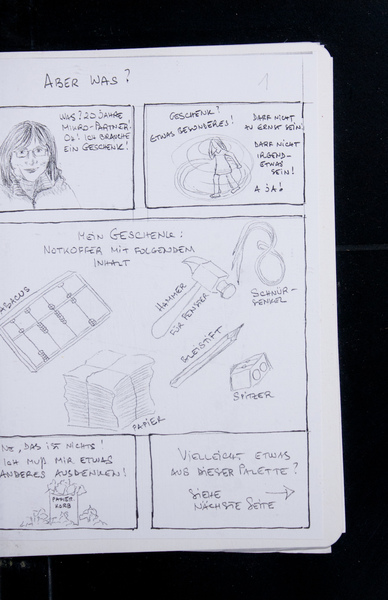 ABER WAS?
1
WAS? 20 JAHRE
MIKRO-PARTNER!
OH! ICH BRAUCHE
EIN GESCHENK!
GESCHENK?
ETWAS BESONDERES!
DARF NICHT
ZU ERNST SEIN!
DARF NICHT
IRGEND-
ETWAS
SEIN!
AJA!
MEIN GESCHENK:
NOTKOFFER MIT FOLGENDEM
INHALT
ABACUS
HAMMER
FÜR FENSTER
SCHNÜR-
SENKEL
BLEISTIFT
PAPIER
SPITZER
DAS IST NICHTS!
ICH MUß MIR ETWAS
ANDERES AUSDENKEN!
PAPIER
KORB
VIELLEICHT ETWAS
AUS DIESER PALETTE?
SIEHE
NÄCHSTE SEITE